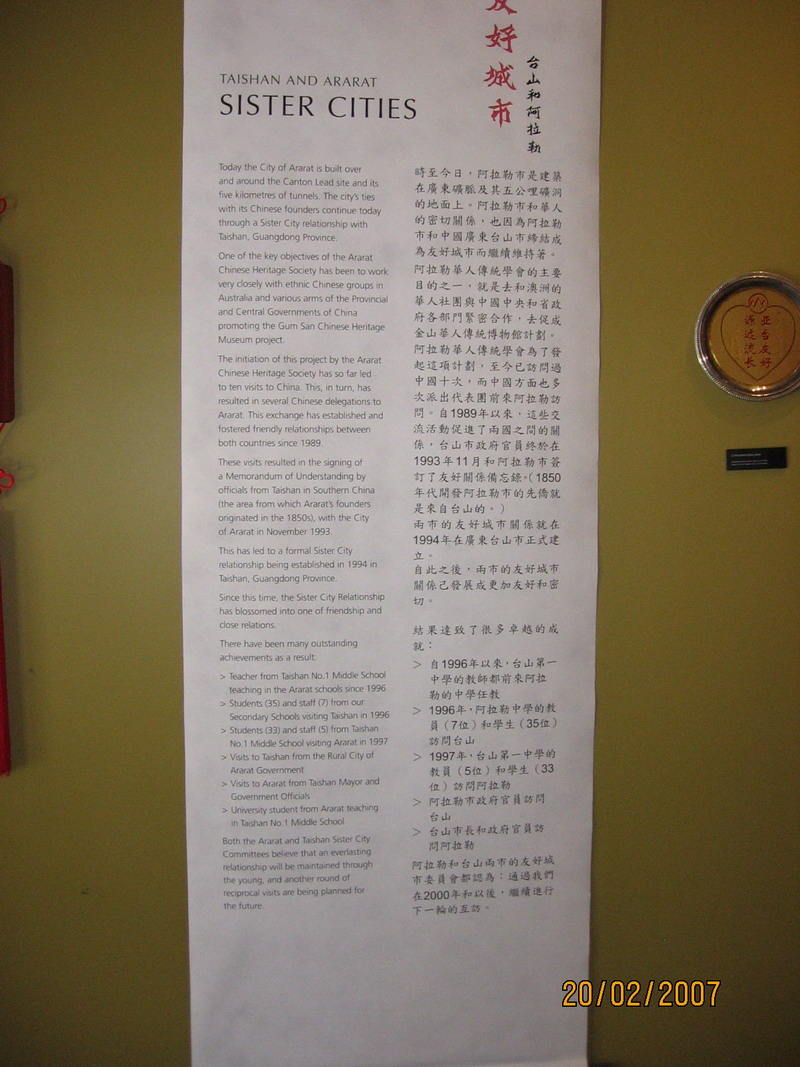 TAISHAN AND ARARAT
SISTER CITIES
友好城市
台山和阿拉勒
Today the City of Ararat is built over
and around the Canton Lead site and its
five kilometres of tunnels. The city's ties
with its Chinese founders continue today
through a Sister City relationship with
Taishan, Guangdong Province.
One of the key objectives of the Ararat
Chinese Heritage Society has been to work
very closely with ethnic Chinese groups in
Australia and various arms of the Provincial
and Central Governments of China
promoting the Gum San Chinese Heritage
Museum project.
The initiation of this project by the Ararat
Chinese Heritage Society has so far led
to ten visits to China. This, in turn, has
resulted in several Chinese delegations to
Ararat. This exchange has established and
fostered friendly relationships between
both countries since 1989.
These visits resulted in the signing of
a Memorandum of Understanding by
officials from Taishan in Southern China
(the area from which Ararat's founders
originated in the 1850s), with the City
of Ararat in November 1993.
This has led to a formal Sister City
relationship being established in 1994 in
Taishan, Guangdong Province.
Since this time, the Sister City Relationship
has blossomed into one of friendship and
close relations.
There have been many outstanding
achievements as a result:
> Teacher from Taishan No.1 Middle School
teaching in the Ararat schools since 1996
> Students (35) and staff (7) from our
Secondary Schools visiting Taishan in 1996
> Students (33) and staff (5) from Taishan
No.1 Middle School visiting Ararat in 1997
> Visits to Taishan from the Rural City of
Ararat Government
> Visits to Ararat from Taishan Mayor and
Government Officials
> University student from Ararat teaching
in Taishan No.1 Middle School
Both the Ararat and Taishan Sister City
Committees believe that an everlasting
relationship will be maintained through
the young, and another round of
reciprocal visits are being planned for
the future.
時至今日，阿拉勒市是建築
在廣東礦脈及其五公哩礦洞
的地面上。阿拉勒市和華人
的密切關係，也因為阿拉勒
市和中國廣東台山市締結成
為友好城市而繼續維持著。
阿拉勒華人傳統學會的主要
目的之一，就是去和澳洲的
華人社團與中國中央和省政
府各部門緊密合作，去促成
金山華人傳統博物館計劃。
阿拉勒華人傳統學會為了發
起這項計劃，至今已訪問過
中國十次，而中國方面也多
次派出代表團前來阿拉勒訪
問。自1989年以來，這些交
流活動促進了兩國之間的關
係，台山市政府官員終於在
1993年11月和阿拉勒市簽
訂了友好關係備忘錄。(1850
年代開發阿拉勒市的先僑就
是來自台山的。)
兩市的友好城市關係就在
1994年在廣東台山市正式建
立。
自此之後，兩市的友好城市
關係已發展成更加友好和密
切。
結果達致了很多卓越的成
就：
> 自1996年以來，台山第一
中學的教師都前來阿拉
勒的中學任教
> 1996年，阿拉勒中學的教
員（7位）和學生（35位）
訪問台山
> 1997年，台山第一中學的
教員（5位）和學生（33
位）訪問阿拉勒
> 阿拉勒市政府官員訪問
台山
> 台山市長和政府官員訪
問阿拉勒
阿拉勒和台山兩市的友好城
市委員會都認為：通過我們
在2000年和以後，繼續進行
下一輪的互訪。
亚台友好
源远流长
20/02/2007